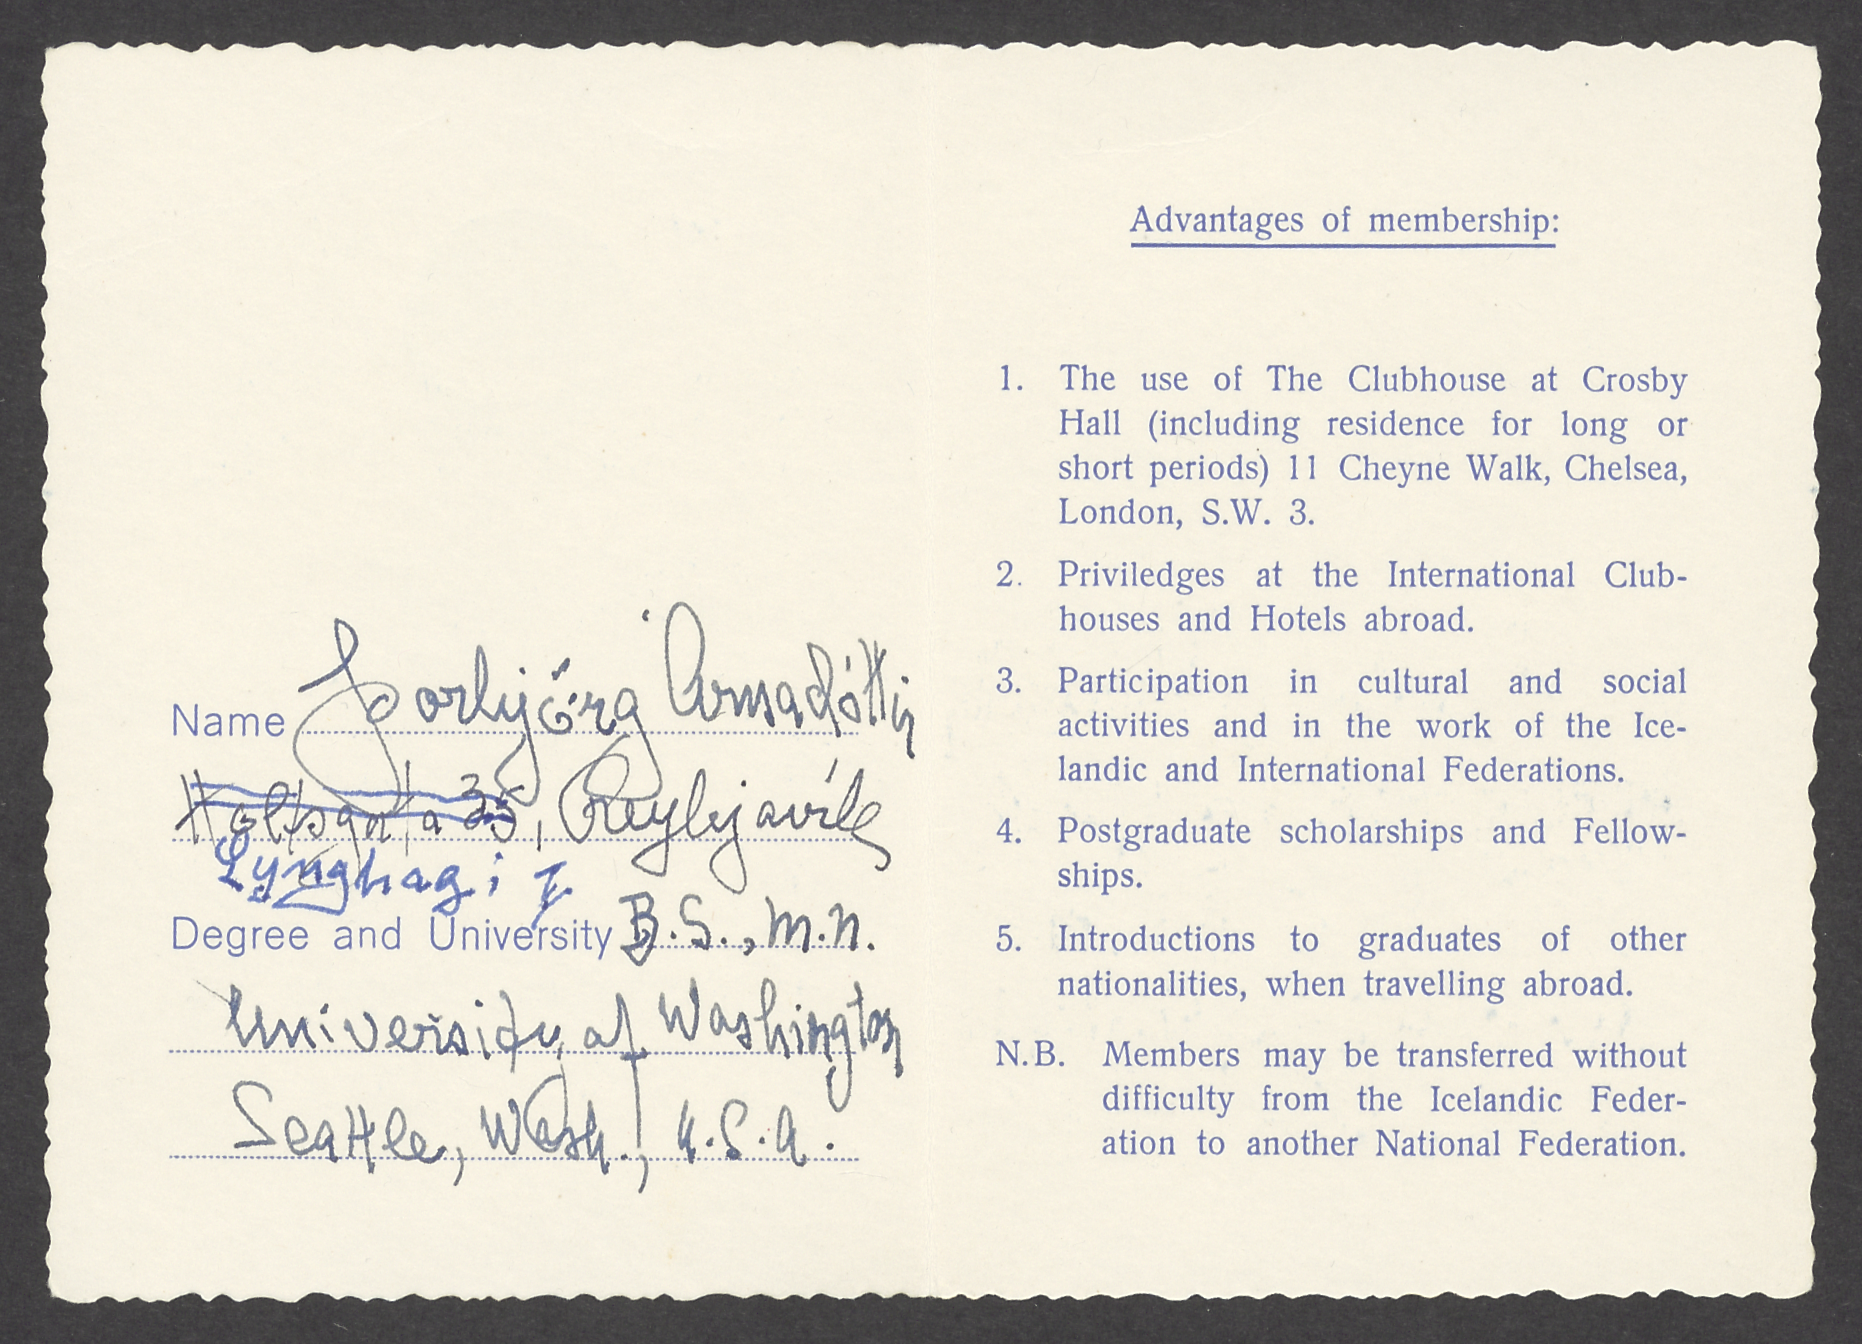 Name Þorbjörg Árnadóttir
Holtsgata 35, Reykjavík
Lynghagi
Degree and University B.S., M.N.
University of Washington
Seattle, Wash., U.S.A.
Advantages of membership:
1. The use of The Clubhouse at Crosby
Hall (including residence for long or
short periods) 11 Cheyne Walk, Chelsea,
London, S.W. 3.
2. Priviledges at the International Club-
houses and Hotels abroad.
3. Participation in cultural and social
activities and in the work of the Ice-
landic and International Federations.
4. Postgraduate scholarships and Fellow-
ships.
5. Introductions to graduates of other
nationalities, when travelling abroad.
N.B. Members may be transferred without
difficulty from the Icelandic Feder-
ation to another National Federation.